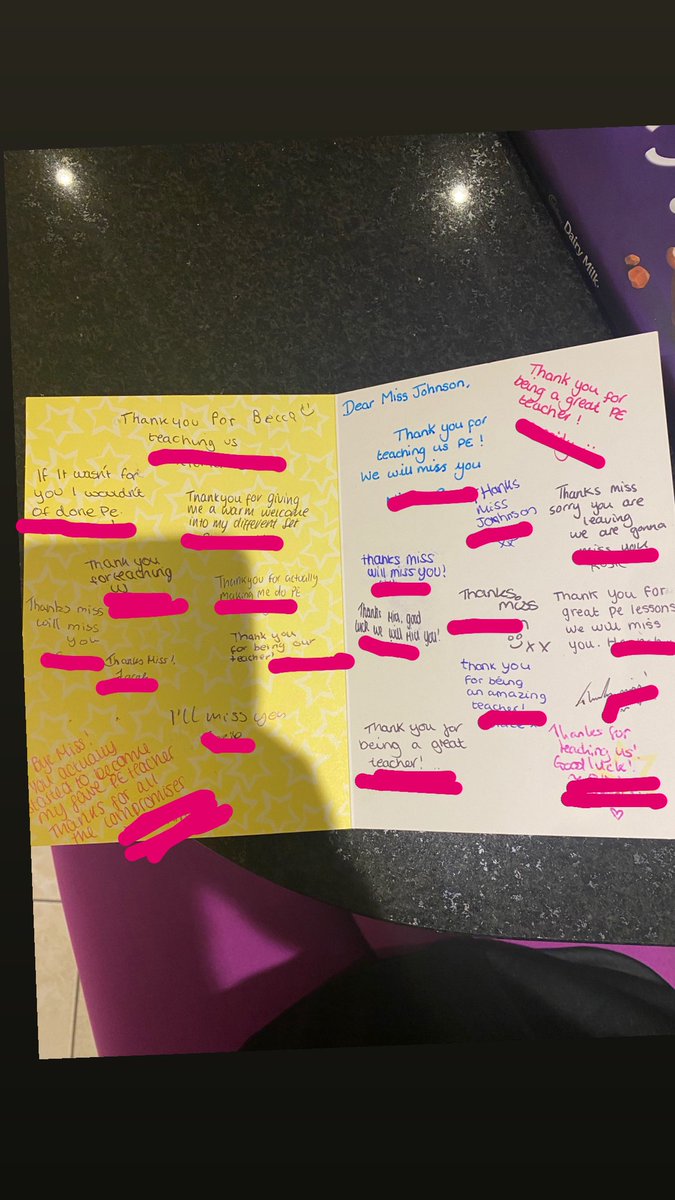 Thankyou for
teaching us
Becca
If it wasn't for
you I wouldn't
of done PE.
Thankyou for giving
me a warm welcome
into my different set
Thank you
for teaching
us
Thankyou for actually
making me do PE
Thanks miss
will miss
you
Thanks Miss!
Thank you
for being our
teacher!
I'll miss you
Bye Miss!
You actually
started to become
my fave PE teacher
Thanks for all
the compromises
Dear Miss Johnson,
Thank you for
teaching us PE!
We will miss you
Thank you for
being a great PE
teacher!
Thanks miss
sorry you are
leaving
we are gonna
miss you
thanks miss
will miss you!
Miss
xx
Thanks
miss
xx
Thank you for
great pe lessons
we will miss
you.
thank you
for being
an amazing
teacher!
Thank you for
being a great
teacher!
Thanks for
teaching us!
Good luck!
Dairy Milk